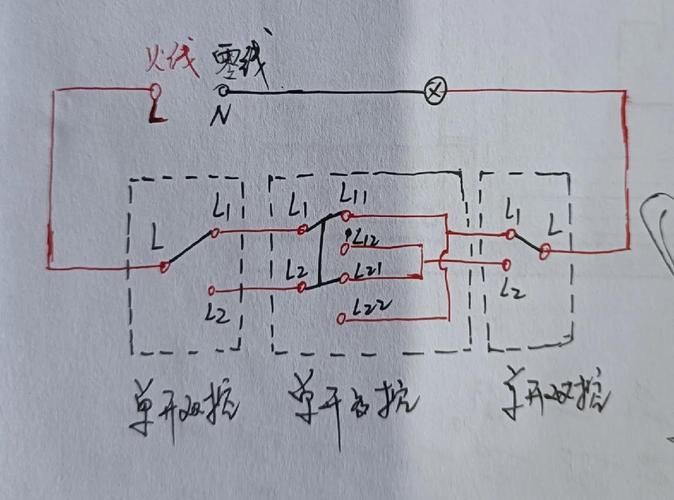 火线 零线
L N
L L1 L1 L11 L1 L
L12
L2 L21
L2 L22 L2
单开双控 单开多控 单开双控